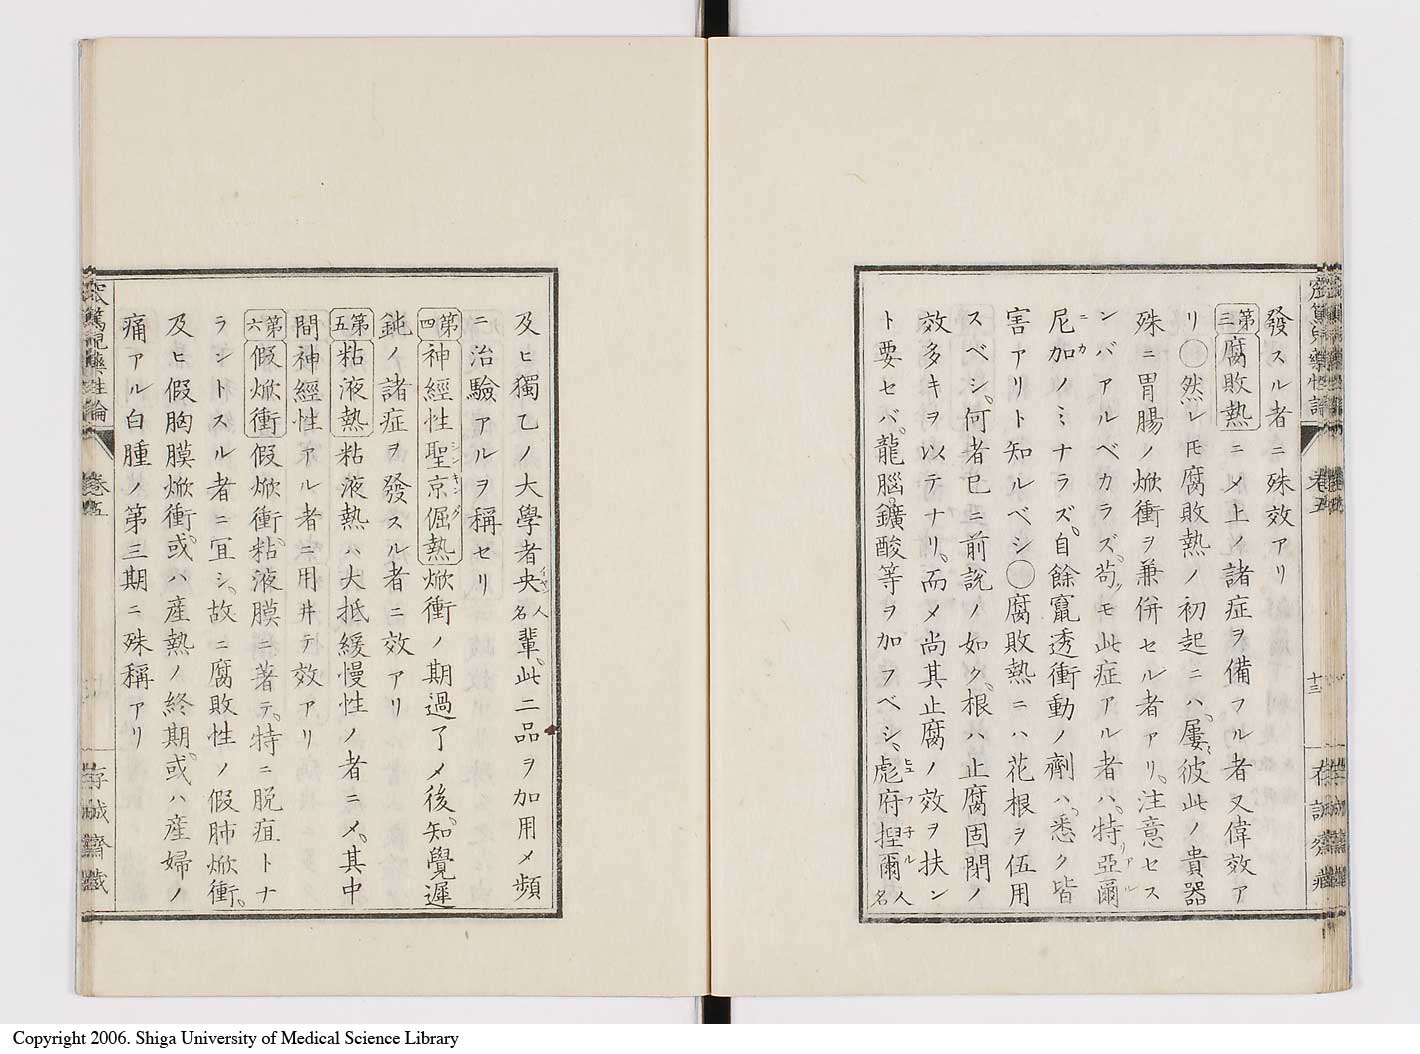 發スル者ニ殊效アリ
第三 腐敗熱ニメ上ノ諸症ヲ備フル者又偉效ア
リ〇然レ𪜈腐敗熱ノ初起ニハ、屢彼此ノ貴器
殊ニ胃腸ノ焮衝ヲ兼併セル者アリ、注意セス
ンバアルベカラズ、苟モ此症アル者ハ、特リ亞爾
尼加ノミナラズ、自餘竄透衝動ノ劑ハ、悉ク皆
害アリト知ルベシ〇腐敗熱ニハ花根ヲ伍用
スベシ、何者已ニ前説ノ如ク、根ハ止腐固閉ノ
效多キヲ以テナリ、而メ尚其止腐ノ效ヲ扶ン
ト要セバ、龍腦、鑛酸等ヲ加フベシ、彪府捏爾人名
卷五
十三
及ヒ獨乙ノ大學者央人名輩、此二品ヲ加用メ頻
ニ治驗アルヲ稱セリ
第四 神經性聖京倔熱 焮衝ノ期過了メ後、知覺遲
鈍ノ諸症ヲ發スル者ニ效アリ
第五 粘液熱 粘液熱ハ大抵緩慢性ノ者ニメ、其中
間神經性アル者ニ用井テ效アリ
第六 假焮衝 假焮衝、粘液膜ニ著テ、特ニ脱疽トナ
ラントスル者ニ宜シ、故ニ腐敗性ノ假肺焮衝、
及ヒ假胸膜焮衝、或ハ産熱ノ終期、或ハ産婦ノ
痛アル白腫ノ第三期ニ殊稱アリ
卷五
Copyright 2006. Shiga University of Medical Science Library